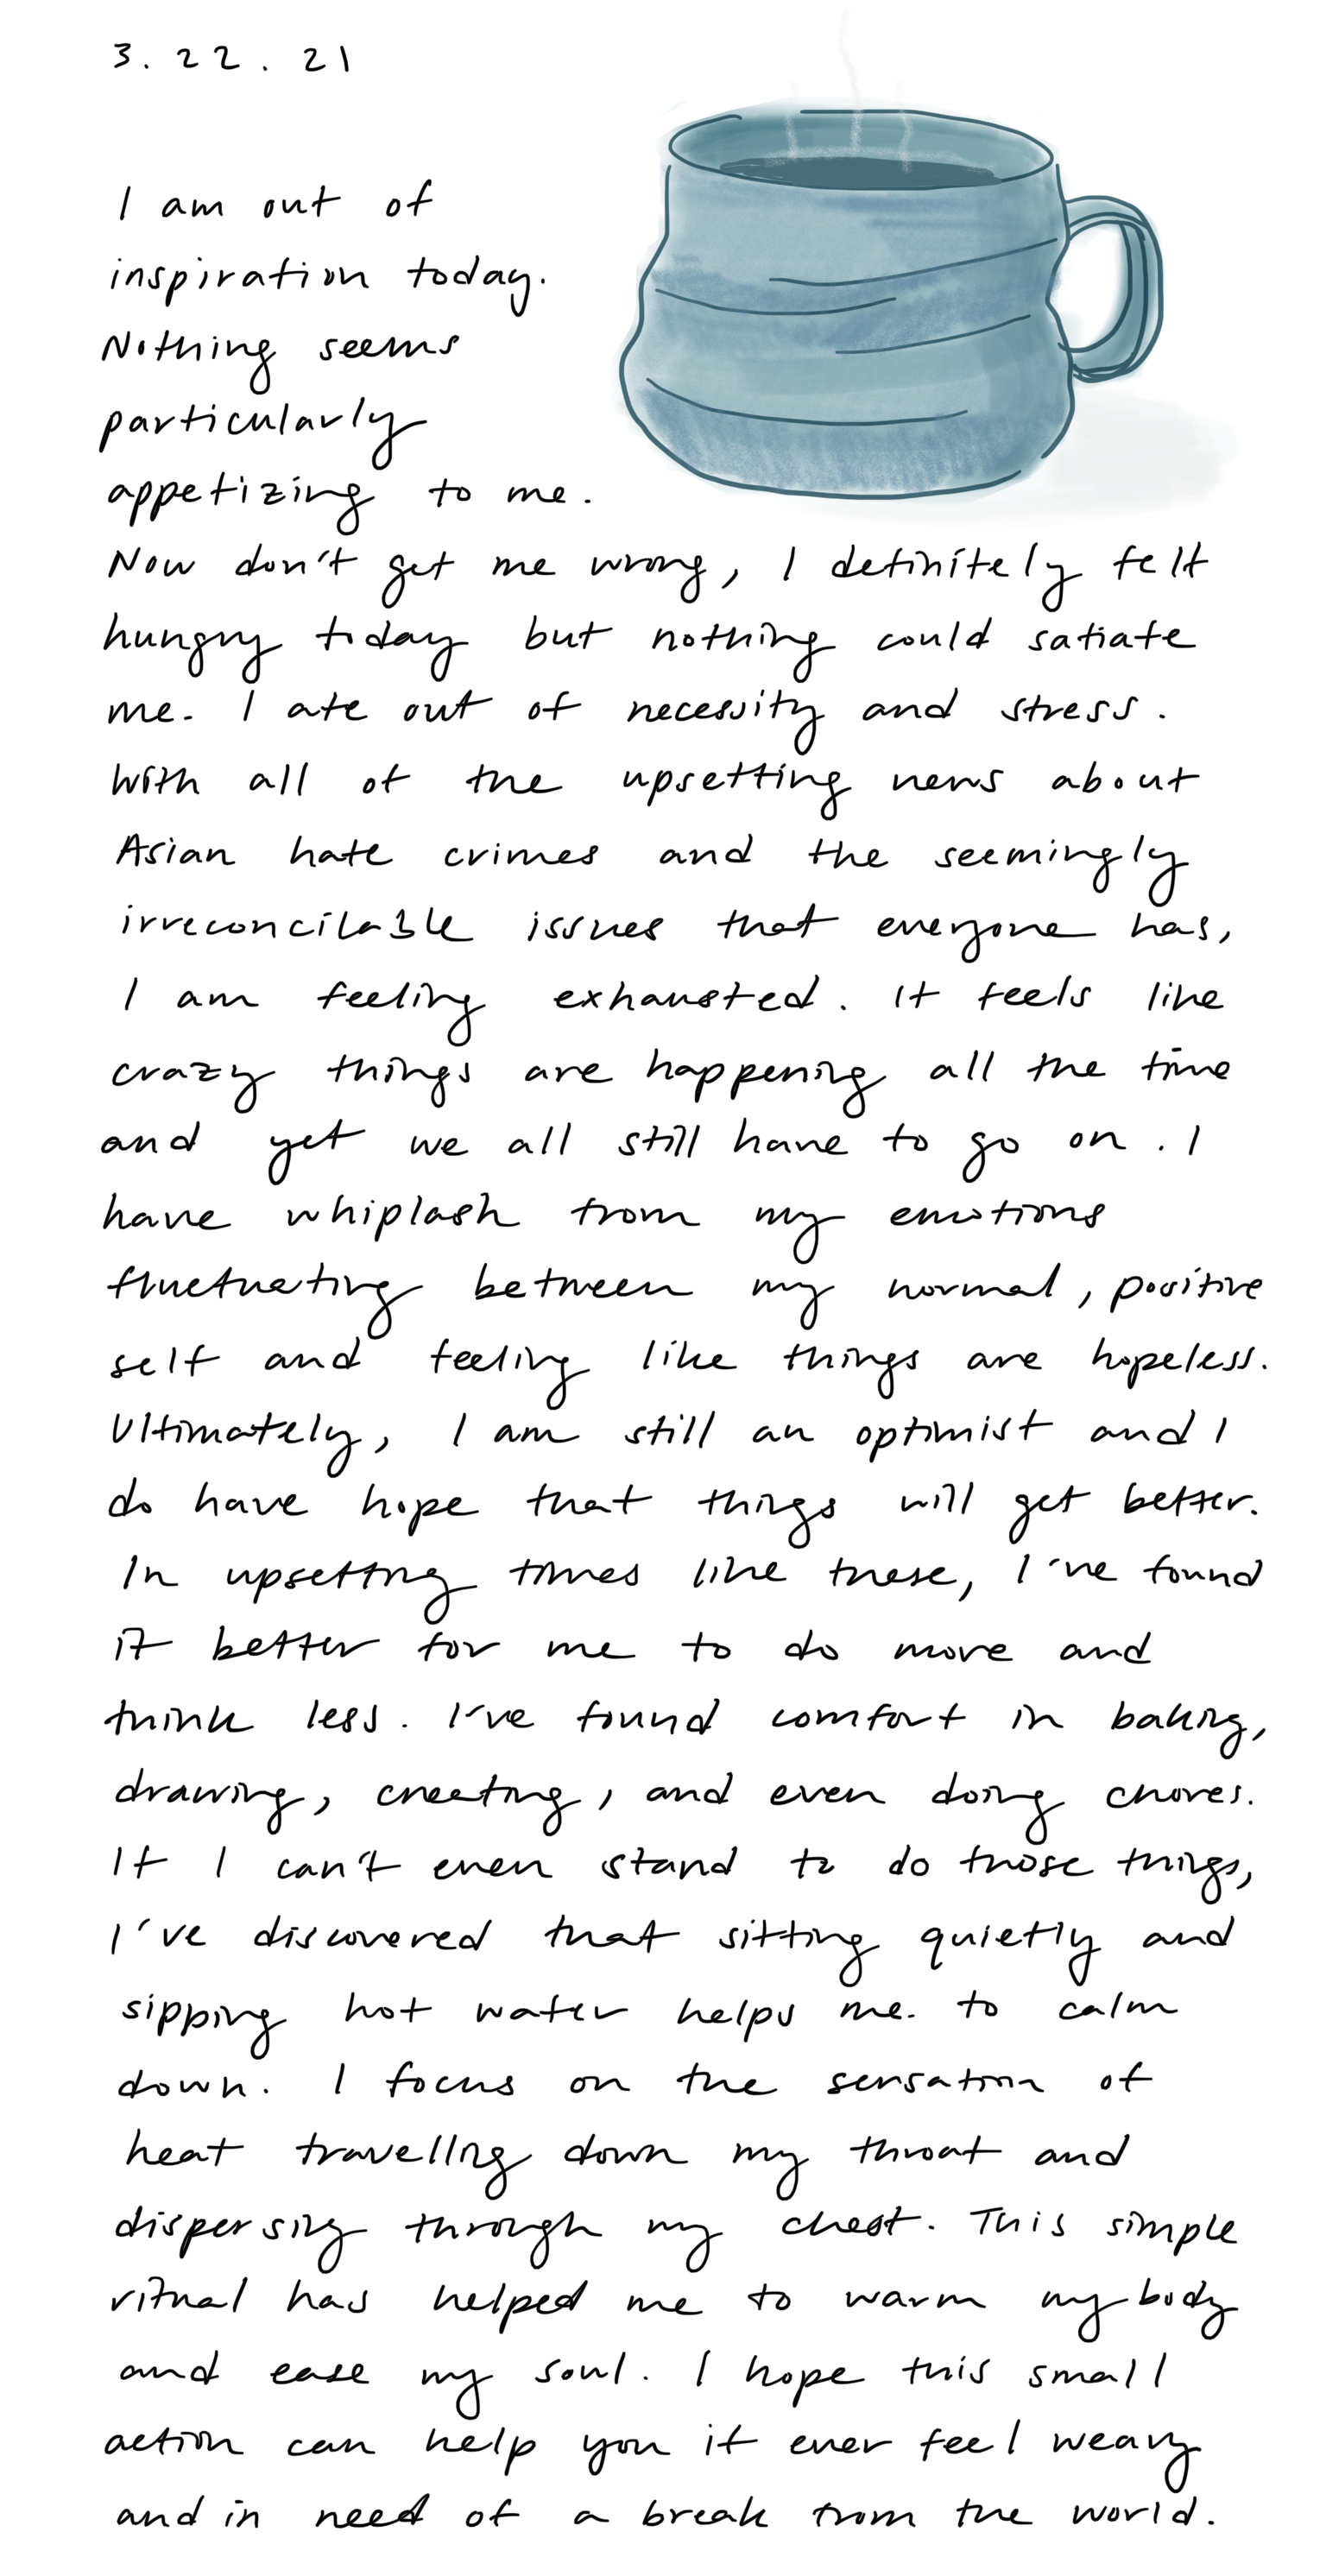 3.22.21
I am out of
inspiration today.
Nothing seems
particularly
appetizing to me.
Now don't get me wrong, I definitely felt
hungry today but nothing could satiate
me. I ate out of necessity and stress.
With all of the upsetting news about
Asian hate crimes and the seemingly
irreconcilable issues that everyone has,
I am feeling exhausted. It feels like
crazy things are happening all the time
and yet we all still have to go on. I
have whiplash from my emotions
fluctuating between my normal, positive
self and feeling like things are hopeless.
Ultimately, I am still an optimist and I
do have hope that things will get better.
In upsetting times like these, I've found
it better for me to do more and
think less. I've found comfort in baking,
drawing, creating, and even doing chores.
If I can't even stand to do those things,
I've discovered that sitting quietly and
sipping hot water helps me. to calm
down. I focus on the sensation of
heat travelling down my throat and
dispersing through my chest. This simple
ritual has helped me to warm my body
and ease my soul. I hope this small
action can help you if ever feel weary
and in need of a break from the world.